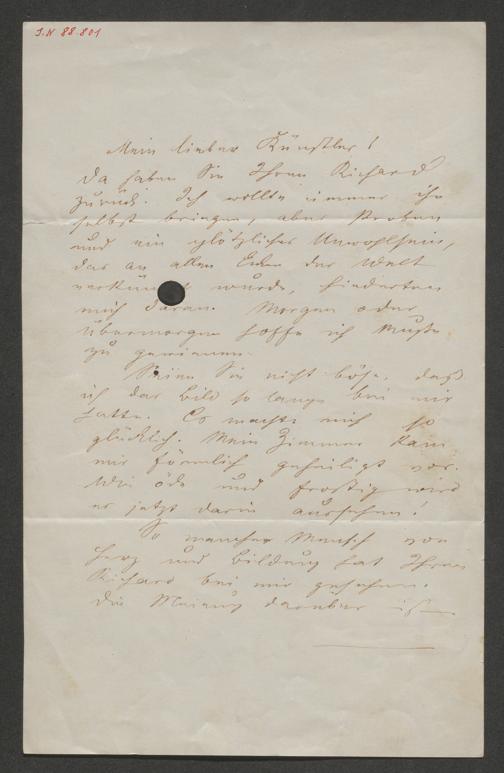 I.N 88.801
Mein lieber Künstler!
Da haben Sie Ihren Richard
zurück. Ich wollte immer ihn
selbst bringen, aber Proben
und ein plötzliches Unwohlsein,
das an allen Enden der Welt
verkündet wurde, hinderten
mich daran. Morgen oder
übermorgen hoffe ich Muße
zu gewinnen.
Seien Sie nicht böse, daß
ich das Bild so lange bei mir
hatte. Es machte mich so
glücklich. Mein Zimmer kam
mir förmlich geheiligt vor.
Wie öde und frostig wird
es jetzt darin aussehen!
So mancher Mensch von
Herz und Bildung hat Ihren
Richard bei mir gesehen.
Die Meinung darüber ist